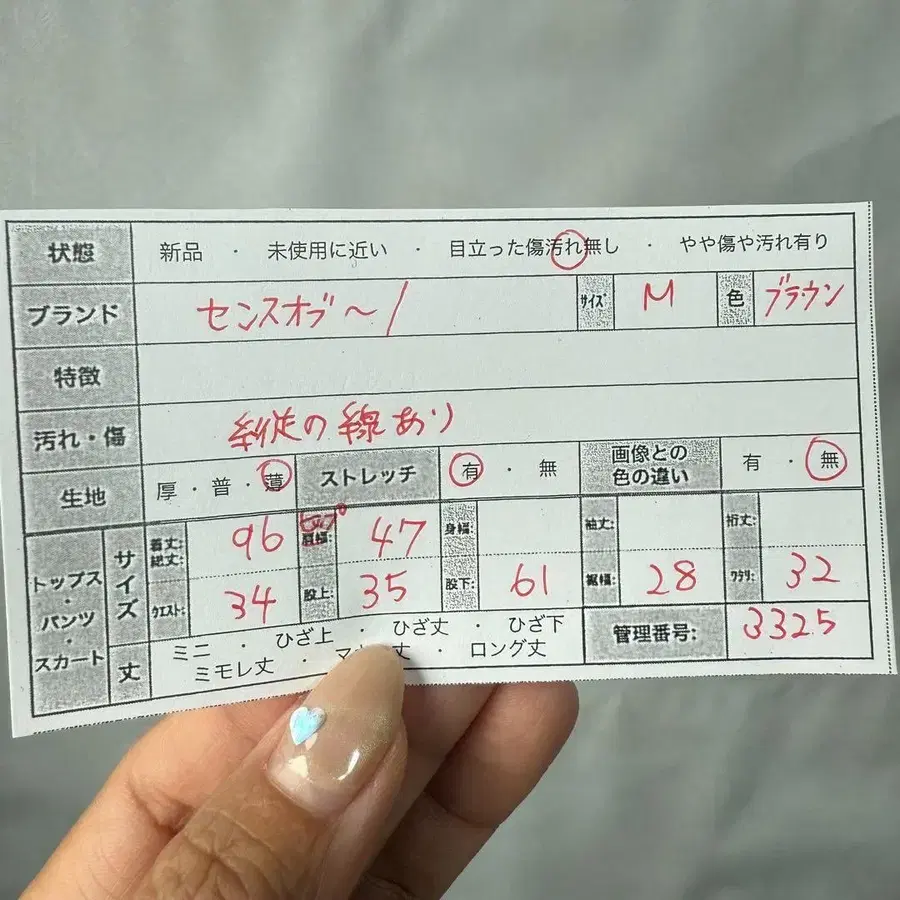 状態 新品 ・ 未使用に近い ・ 目立った傷汚れ無し ・ やや傷や汚れ有り
ブランド センスオブ〜 サイズ M 色 ブラウン
特徴
汚れ・傷 の線あり
生地 厚・普・薄 ストレッチ 有・無 画像との色の違い 有・無
トップス・パンツ・スカート サイズ 着丈: 総丈: 96 ヒップ 肩幅: 47 身幅: 袖丈: 裄丈:
ウエスト: 34 股上: 35 股下: 61 裾幅: 28 ワタリ: 32
丈 ミニ ・ ひざ上 ・ ひざ丈 ・ ひざ下 管理番号: 3325
ミモレ丈 ・ 丈 ・ ロング丈